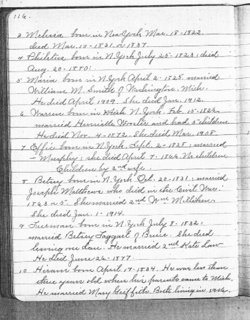 116.
2 Melissa born in New York Mar. 18-1822
died Mar. 10-1831 or 1837
4 Philetus born in N. York July 25-1823; died
Aug. 20-1880.
5 Maria born in N. York April 2-1825; married
William M. Smith of Washington Mich.
He died April 1909. She died Jan. 1912.
6 Warren born in West N. York Feb. 15-1822
married Henriett and had 5 children
He died Nov. 4-1872. She died Mar. 1908.
7 born in N. York, Sept. 2-1828; married
Murphy; she died April 9-1866. No children
Children by 2nd wife.
8 Betsey born in N. York Oct. 20-1831; married
Joseph Matthews who died in the Civil War
1863 or 5. She married 2nd Wm.
She died Jan. 1-1914.
9 Freeman born in N. York July 7-1832.
married Betsey of Bruce. She died
leaving one son. He married 2nd Kate Law
He died June 26-1877
10 Hiram born April 17-1834. He was less than
three years old when his parents came to Mich.
He married Mary Both living in 1902.